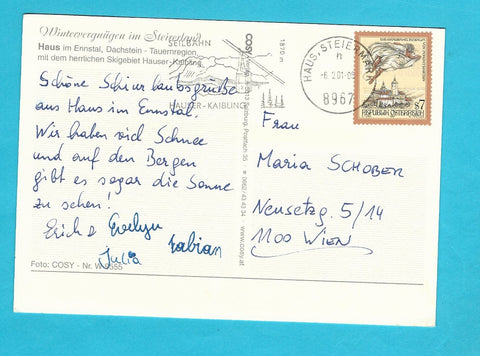 Wintervergnügen im Steirerland
Haus im Ennstal, Dachstein - Tauernregion,
mit dem herrlichen Skigebiet Hauser-Kaibling
Schöne Schiurlaubsgrüße
aus Haus im Ennstal.
Wir haben viel Schnee
und auf den Bergen
gibt es sogar die Sonne
zu sehen!
Erich & Evelyn
Julia Fabian
Foto: COSY - Nr. W
COSY
Salzburg, Postfach 55
www.cosy.at
SEILBAHN
1870 m
HAUSER-KAIBLING
HAUS, STEIERMARK
n
-6.2.01-
8967
S7
REPUBLIK ÖSTERREICH
Frau
Maria SCHOBER
Neusetzg. 5/14
1100 WIEN